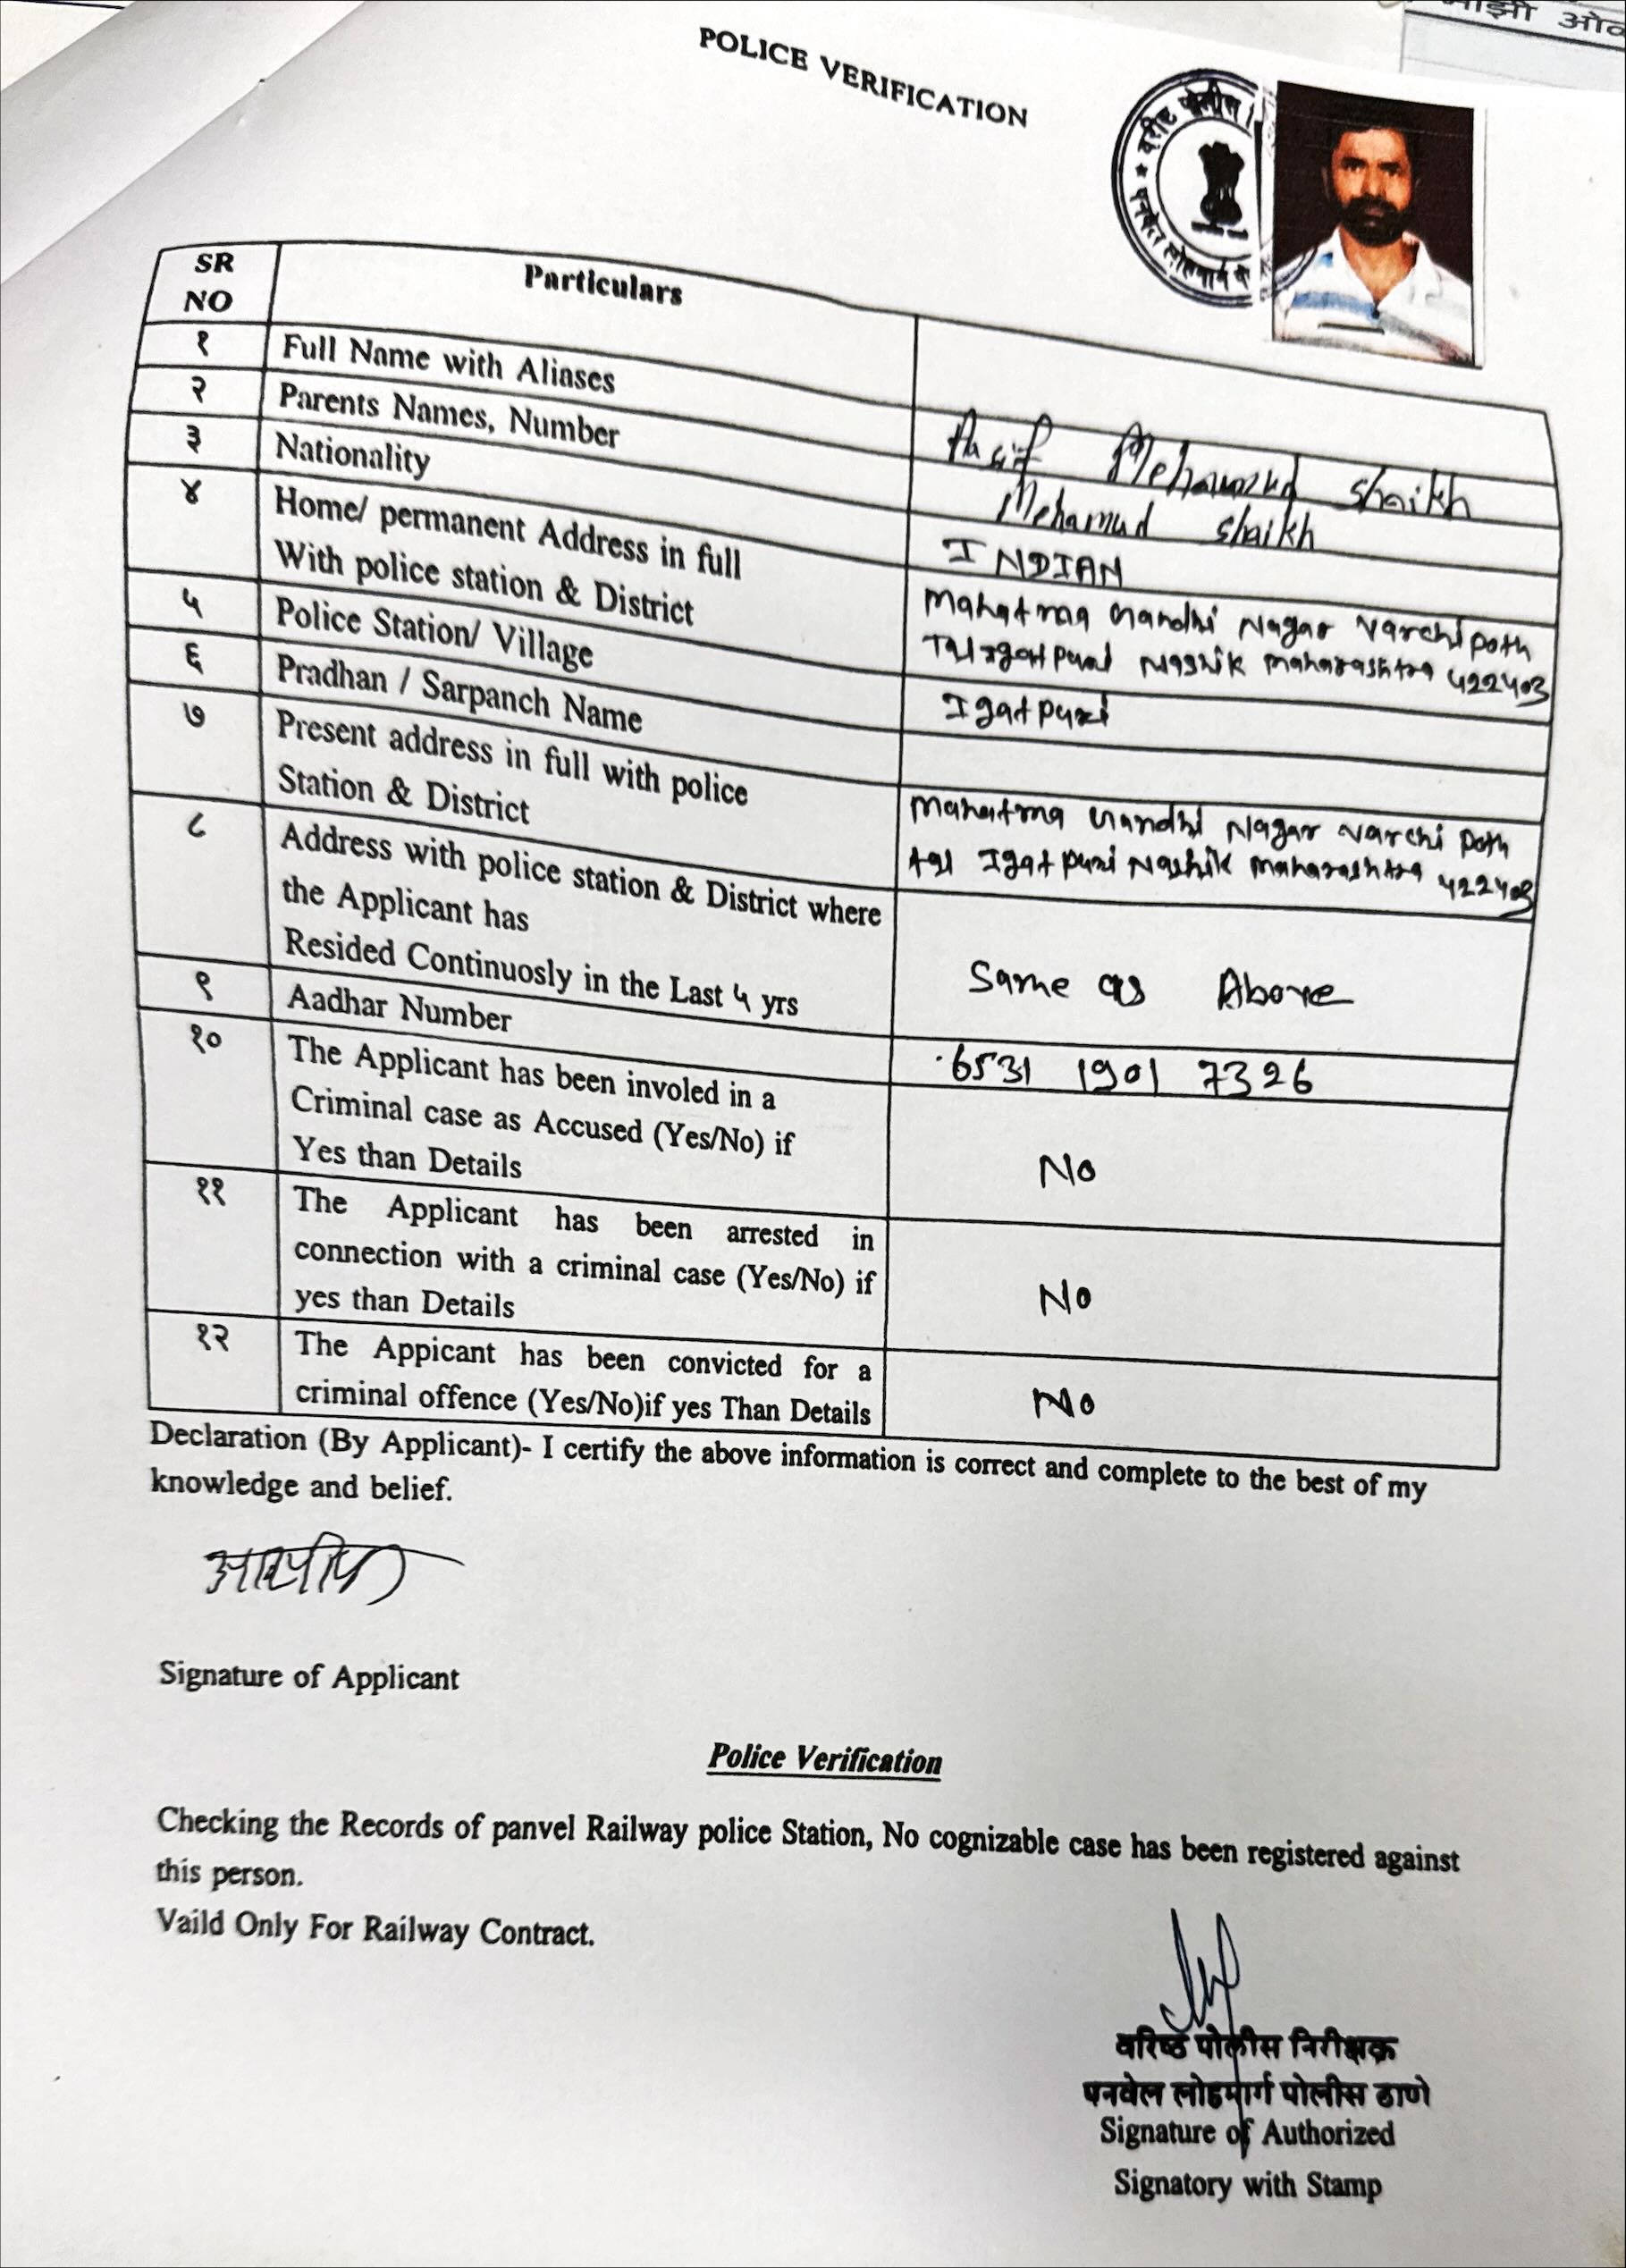 माझी ओ
POLICE VERIFICATION
वरीष्ठ पोलीस
पनवेल लोहमार्ग पो
SR NO
Particulars
१ Full Name with Aliases Asif Mehamud shaikh
२ Parents Names, Number Mehamud shaikh
३ Nationality INDIAN
४ Home/ permanent Address in full Mahatma Gandhi Nagar Varchi peth
With police station & District Tal Igatpuri Nashik maharashtra 422403
५ Police Station/ Village Igatpuri
६ Pradhan / Sarpanch Name
७ Present address in full with police Mahatma Gandhi Nagar Varchi peth
Station & District tal Igatpuri Nashik maharashtra 422403
८ Address with police station & District where
the Applicant has Same as Above
Resided Continuosly in the Last ५ yrs
९ Aadhar Number 6531 1901 7326
१० The Applicant has been involed in a
Criminal case as Accused (Yes/No) if No
Yes than Details
११ The Applicant has been arrested in
connection with a criminal case (Yes/No) if No
yes than Details
१२ The Appicant has been convicted for a
criminal offence (Yes/No)if yes Than Details No
Declaration (By Applicant)- I certify the above information is correct and complete to the best of my
knowledge and belief.
आसीफ
Signature of Applicant
Police Verification
Checking the Records of panvel Railway police Station, No cognizable case has been registered against
this person.
Vaild Only For Railway Contract.
वरिष्ठ पोलीस निरीक्षक
पनवेल लोहमार्ग पोलीस ठाणे
Signature of Authorized
Signatory with Stamp